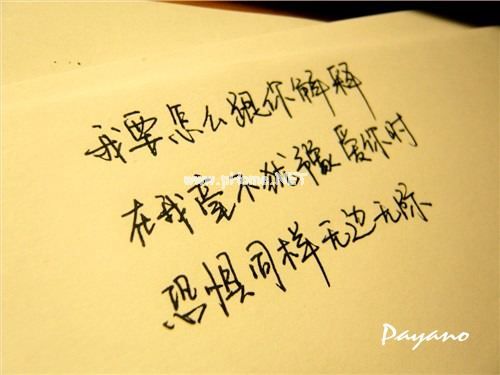 我要怎么跟你解释
在我毫不犹豫爱你时
恐惧同样无边无际
Payano